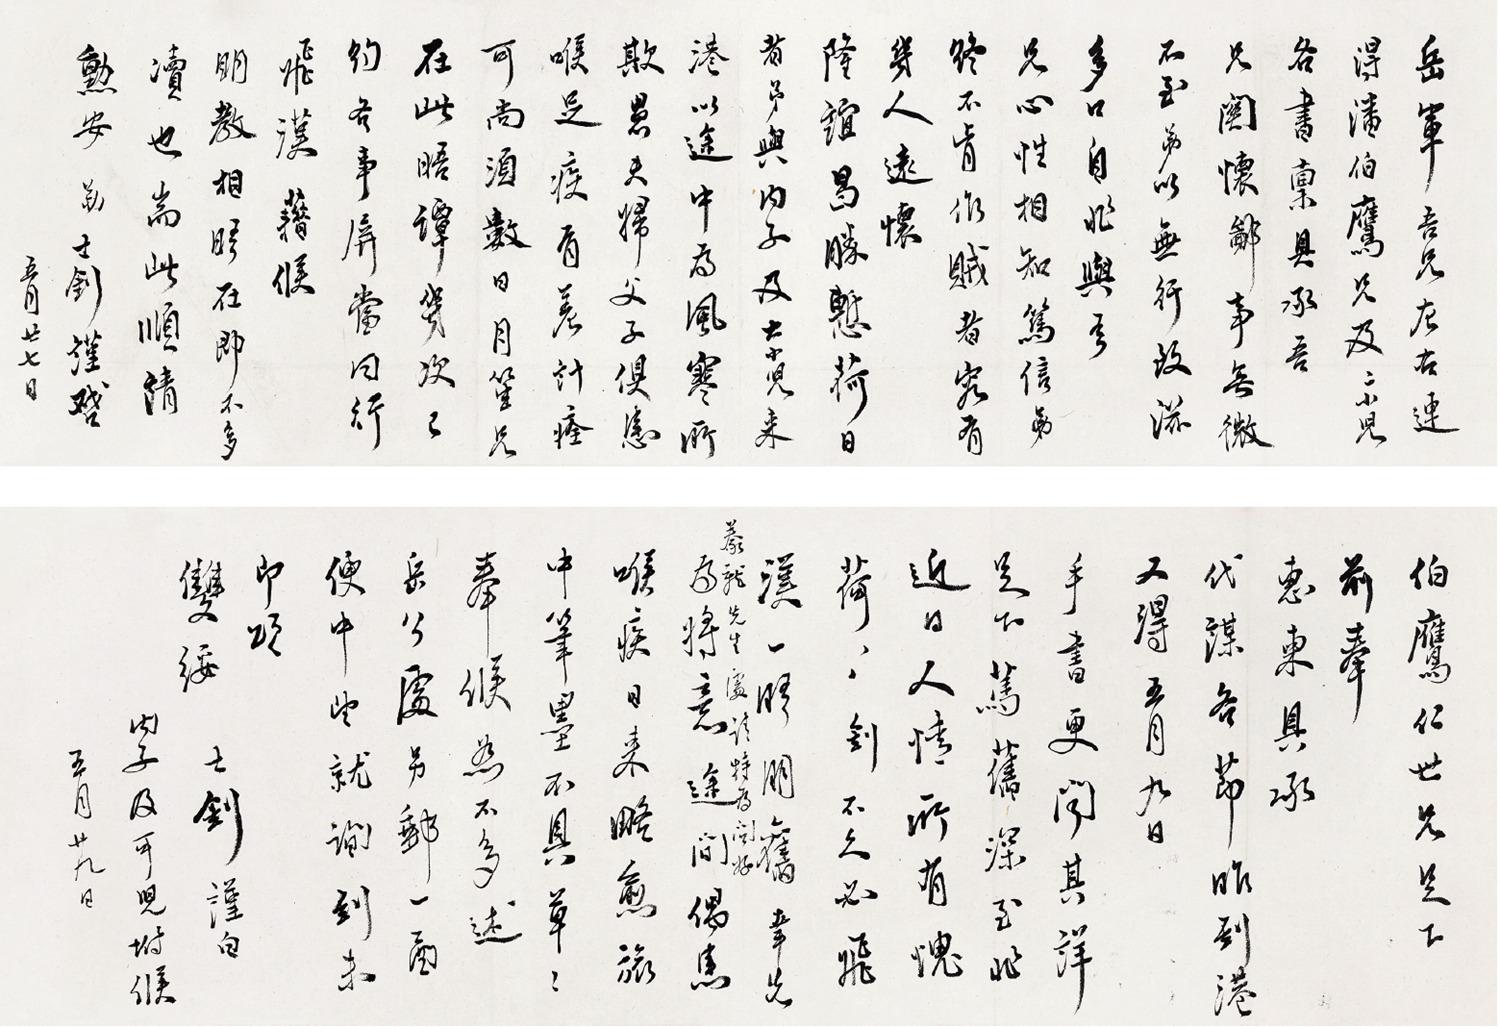 岳軍吾兄左右連
得潘伯鷹兄及二小兒
各書稟具承吾
兄關懷鄙事無微
不至弟以無行致滋
多口自非與吾
兄心性相知篤信弟
終不肯作賊者寧有
幾人遠懷
隆誼曷勝慙荷日
者弟與內子及大小兒來
港以途中為風寒所
欺愚夫婦父子俱患
喉足疾有羔計痊
可尚須數日月笙兄
在此晤譚幾次已
約各事屏當同行
飛漢藉候
明教相晤在即不多
瀆也耑此順請
勳安 弟士釗謹啓
五月廿七日
伯鷹仁世兄足下
前奉
惠柬具承
代謀各節昨到港
又得五月九日
手書更聞其詳
足下篤舊深至非
近日人情所有愧
荷、、釗不久必飛
漢一晤朋舊幸先
為將意途間偶患
喉疾日來略愈旅
中筆墨不具草草
奉候並不多述
岳公處另郵一函
便中望就詢到未
即頌
雙綏 士釗謹白
內子及可兒坿候
五月廿九日
慕龍先生處請特為問好